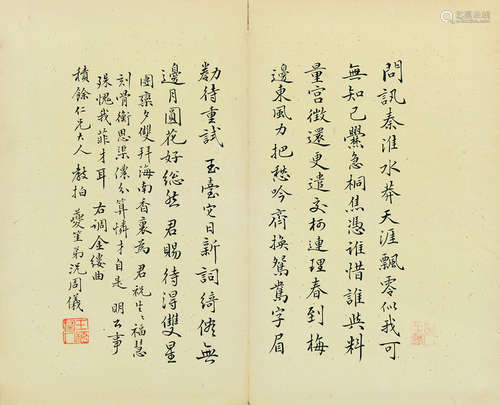 問訊秦淮水莽天涯飄零似我可
無知己爨急桐焦憑誰惜誰與料
量宮徵還更遣交柯連理春到梅
邊東風力把愁吟齊換鴛鴦字眉
重試 玉臺定日新詞綺
邊月圓花好總然 君賜待得雙星
團欒夕雙拜海南香裏為 君祝生生福慧
刻骨銜恩梁 分算憐才自是 明公事
殊愧我菲才耳 右調金縷曲
積餘仁兄大人 教拍 夔笙弟況周儀